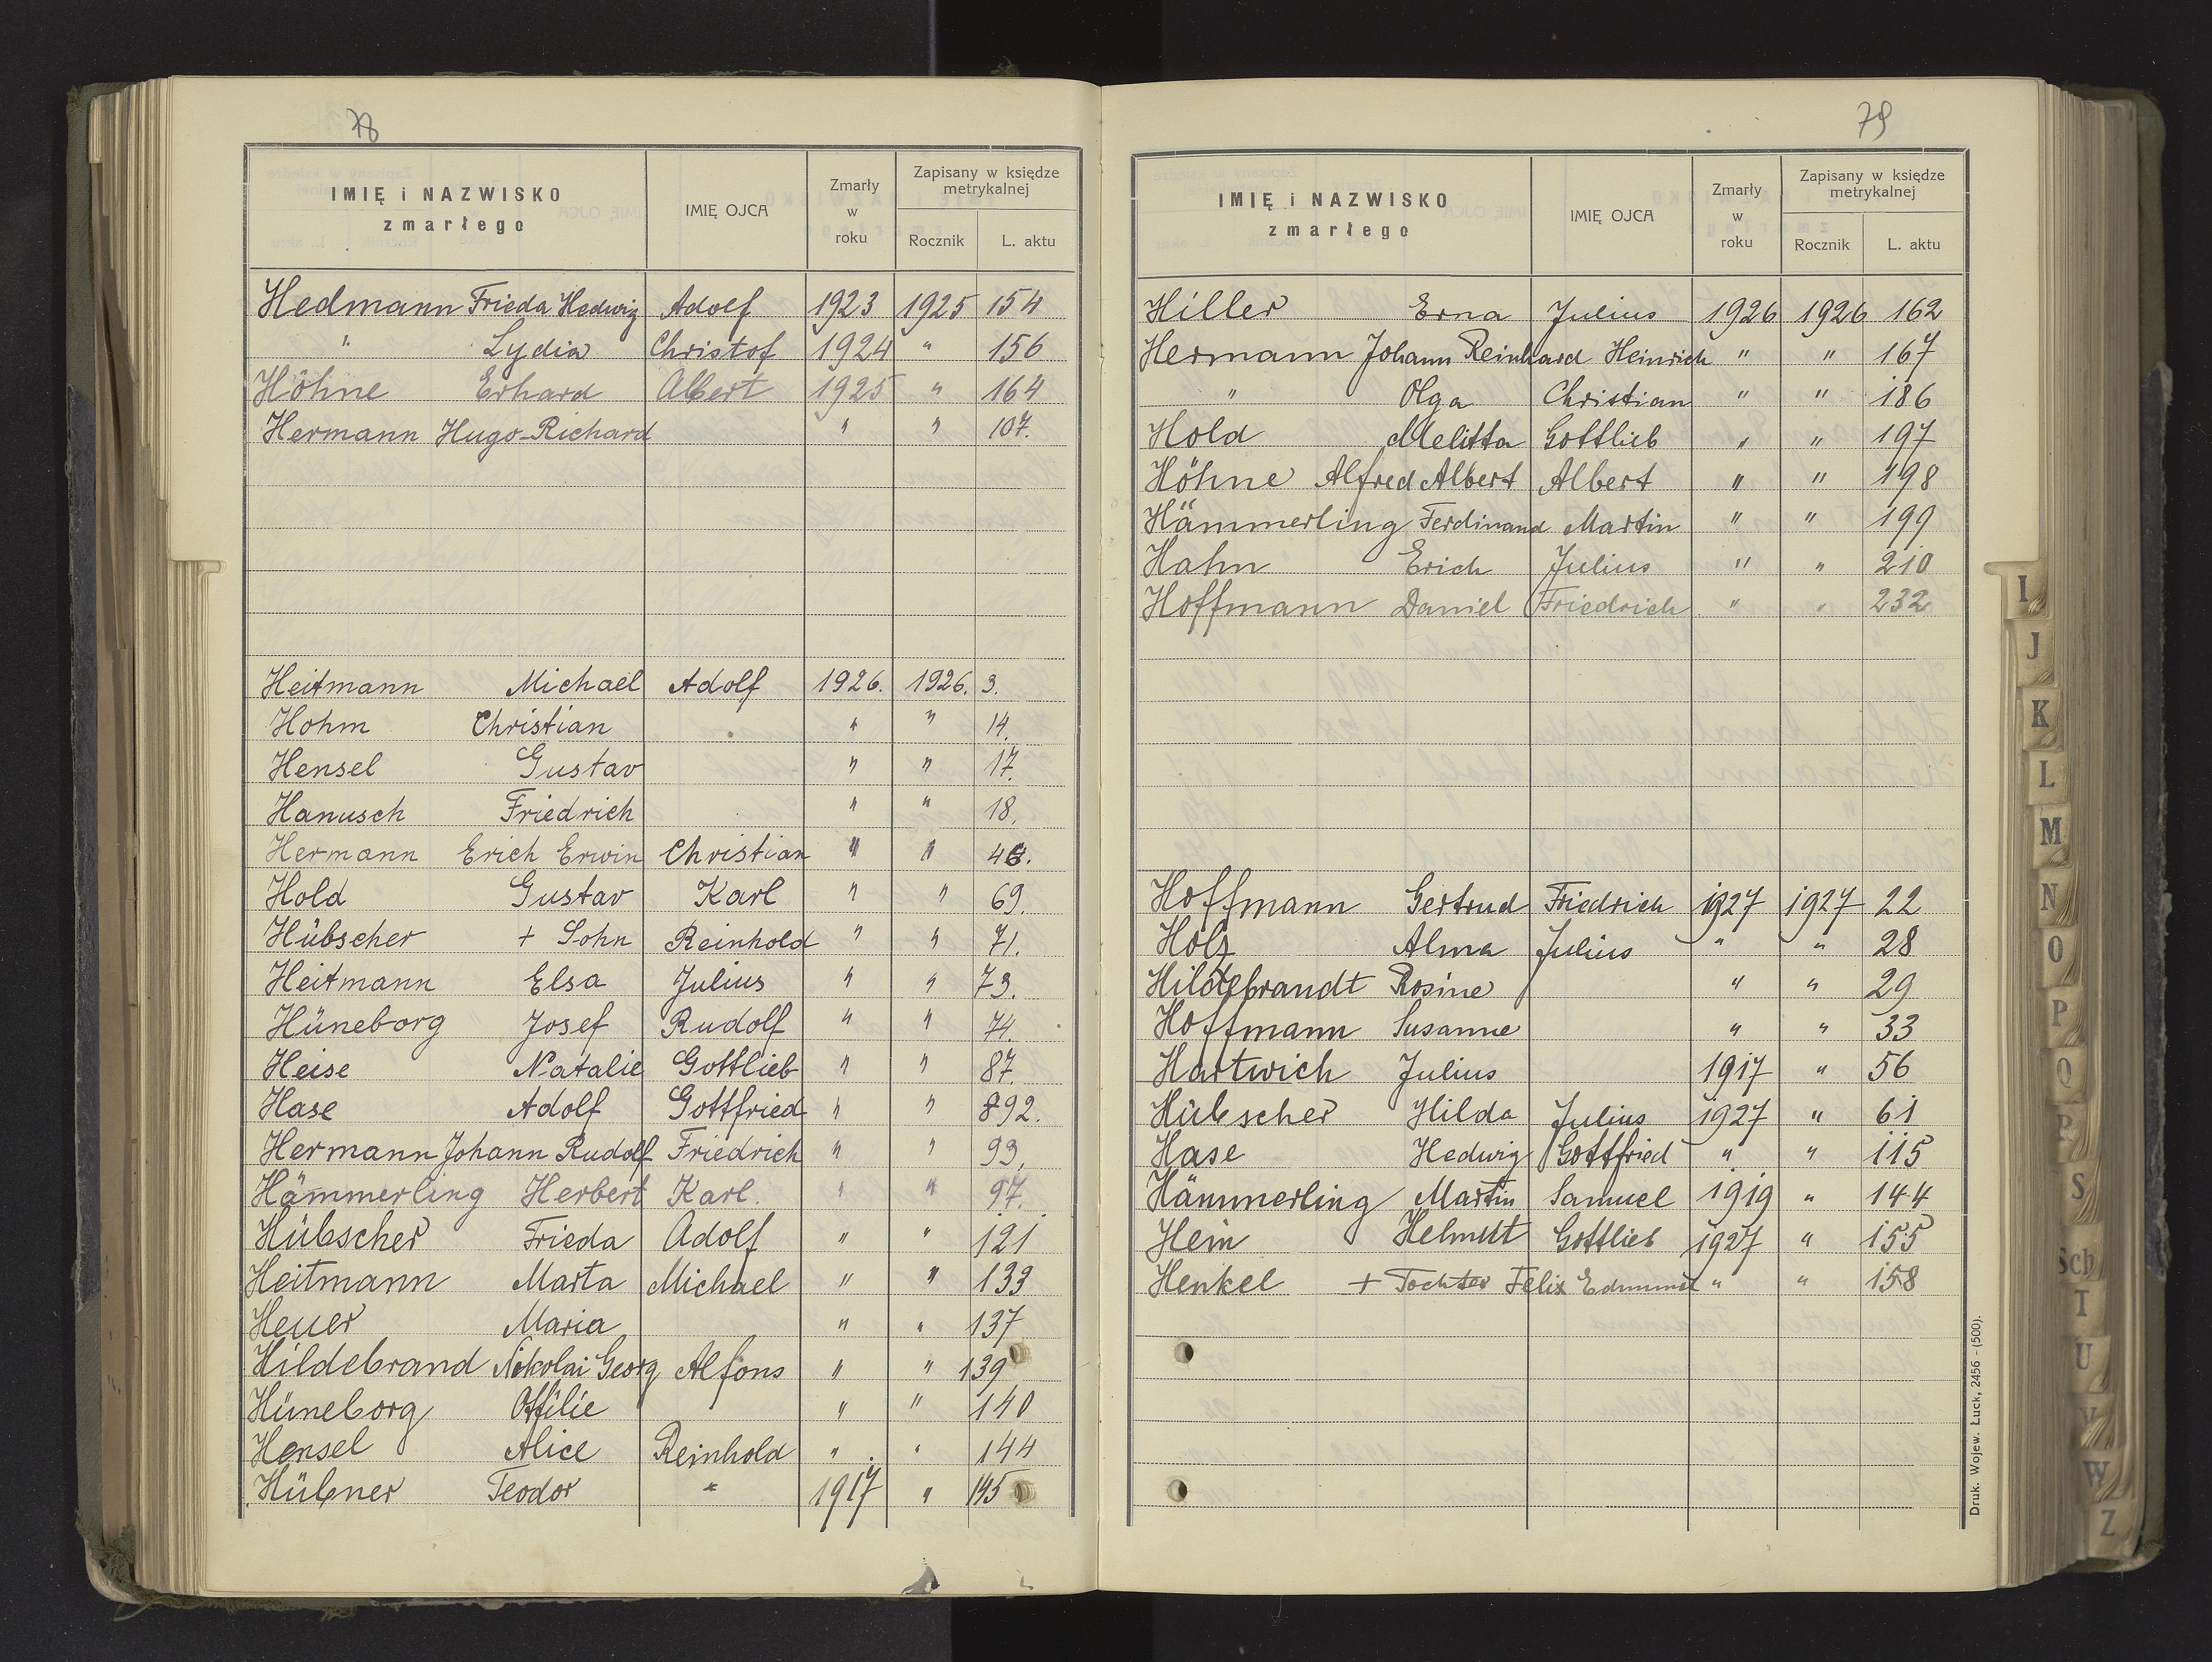 78
IMIĘ i NAZWISKO zmarłego IMIĘ OJCA Zmarły w roku Zapisany w księdze metrykalnej Rocznik L. aktu
Hedmann Frieda Hedwig Adolf 1923 1925 154
" Lydia Christof 1924 " 156
Höhne Erhard Albert 1925 " 164
Hermann Hugo-Richard " " 107.
Heitmann Michael Adolf 1926. 1926. 3.
Hohm Christian " " 14.
Hensel Gustav " " 17.
Hanusch Friedrich " " 18.
Hermann Erich Erwin Christian " "
Hold Gustav Karl " " 69.
Hübscher + Sohn Reinhold " " 71.
Heitmann Elsa Julius " " 73.
Hüneborg Josef Rudolf " " 74.
Heise Natalie Gottlieb " " 87.
Hase Adolf Gottfried " " 892.
Hermann Johann Rudolf Friedrich " " 93.
Hämmerling Herbert Karl. " " 97.
Hübscher Frieda Adolf " " 121
Heitmann Marta Michael " " 133
Heuer Maria " " 137
Hildebrand Nikolai Georg Alfons " " 139
Hüneborg Ottilie " " 140
Hensel Alice Reinhold " " 144
Hübner Teodor " 1917 " 145
79
IMIĘ i NAZWISKO zmarłego IMIĘ OJCA Zmarły w roku Zapisany w księdze metrykalnej Rocznik L. aktu
Hiller Erna Julius 1926 1926 162
Hermann Johann Reinhard Heinrich " " 167
" Olga Christian " " 186
Hold Melitta Gottlieb " " 197
Höhne Alfred Albert Albert " " 198
Hämmerling Ferdinand Martin " " 199
Hahn Erich Julius " " 210
Hoffmann Daniel Friedrich " " 232
Hoffmann Gertrud Friedrich 1927 1927 22
Holz Alma Julius " " 28
Hildebrandt Rosine " " 29
Hoffmann Susanne " " 33
Hartwich Julius 1917 " 56
Hübscher Hilda Julius 1927 " 61
Hase Hedwig Gottfried " " 115
Hämmerling Martin Samuel 1919 " 144
Hein Helmut Gottlieb 1927 " 155
Henkel + Tochter Felix Edmund " " 158
Druk. Wojew. Łuck, 2456 - (500).
I
J
K
L
M
N
O
P
Q
R
S
Sch
T
U
V
W
Z